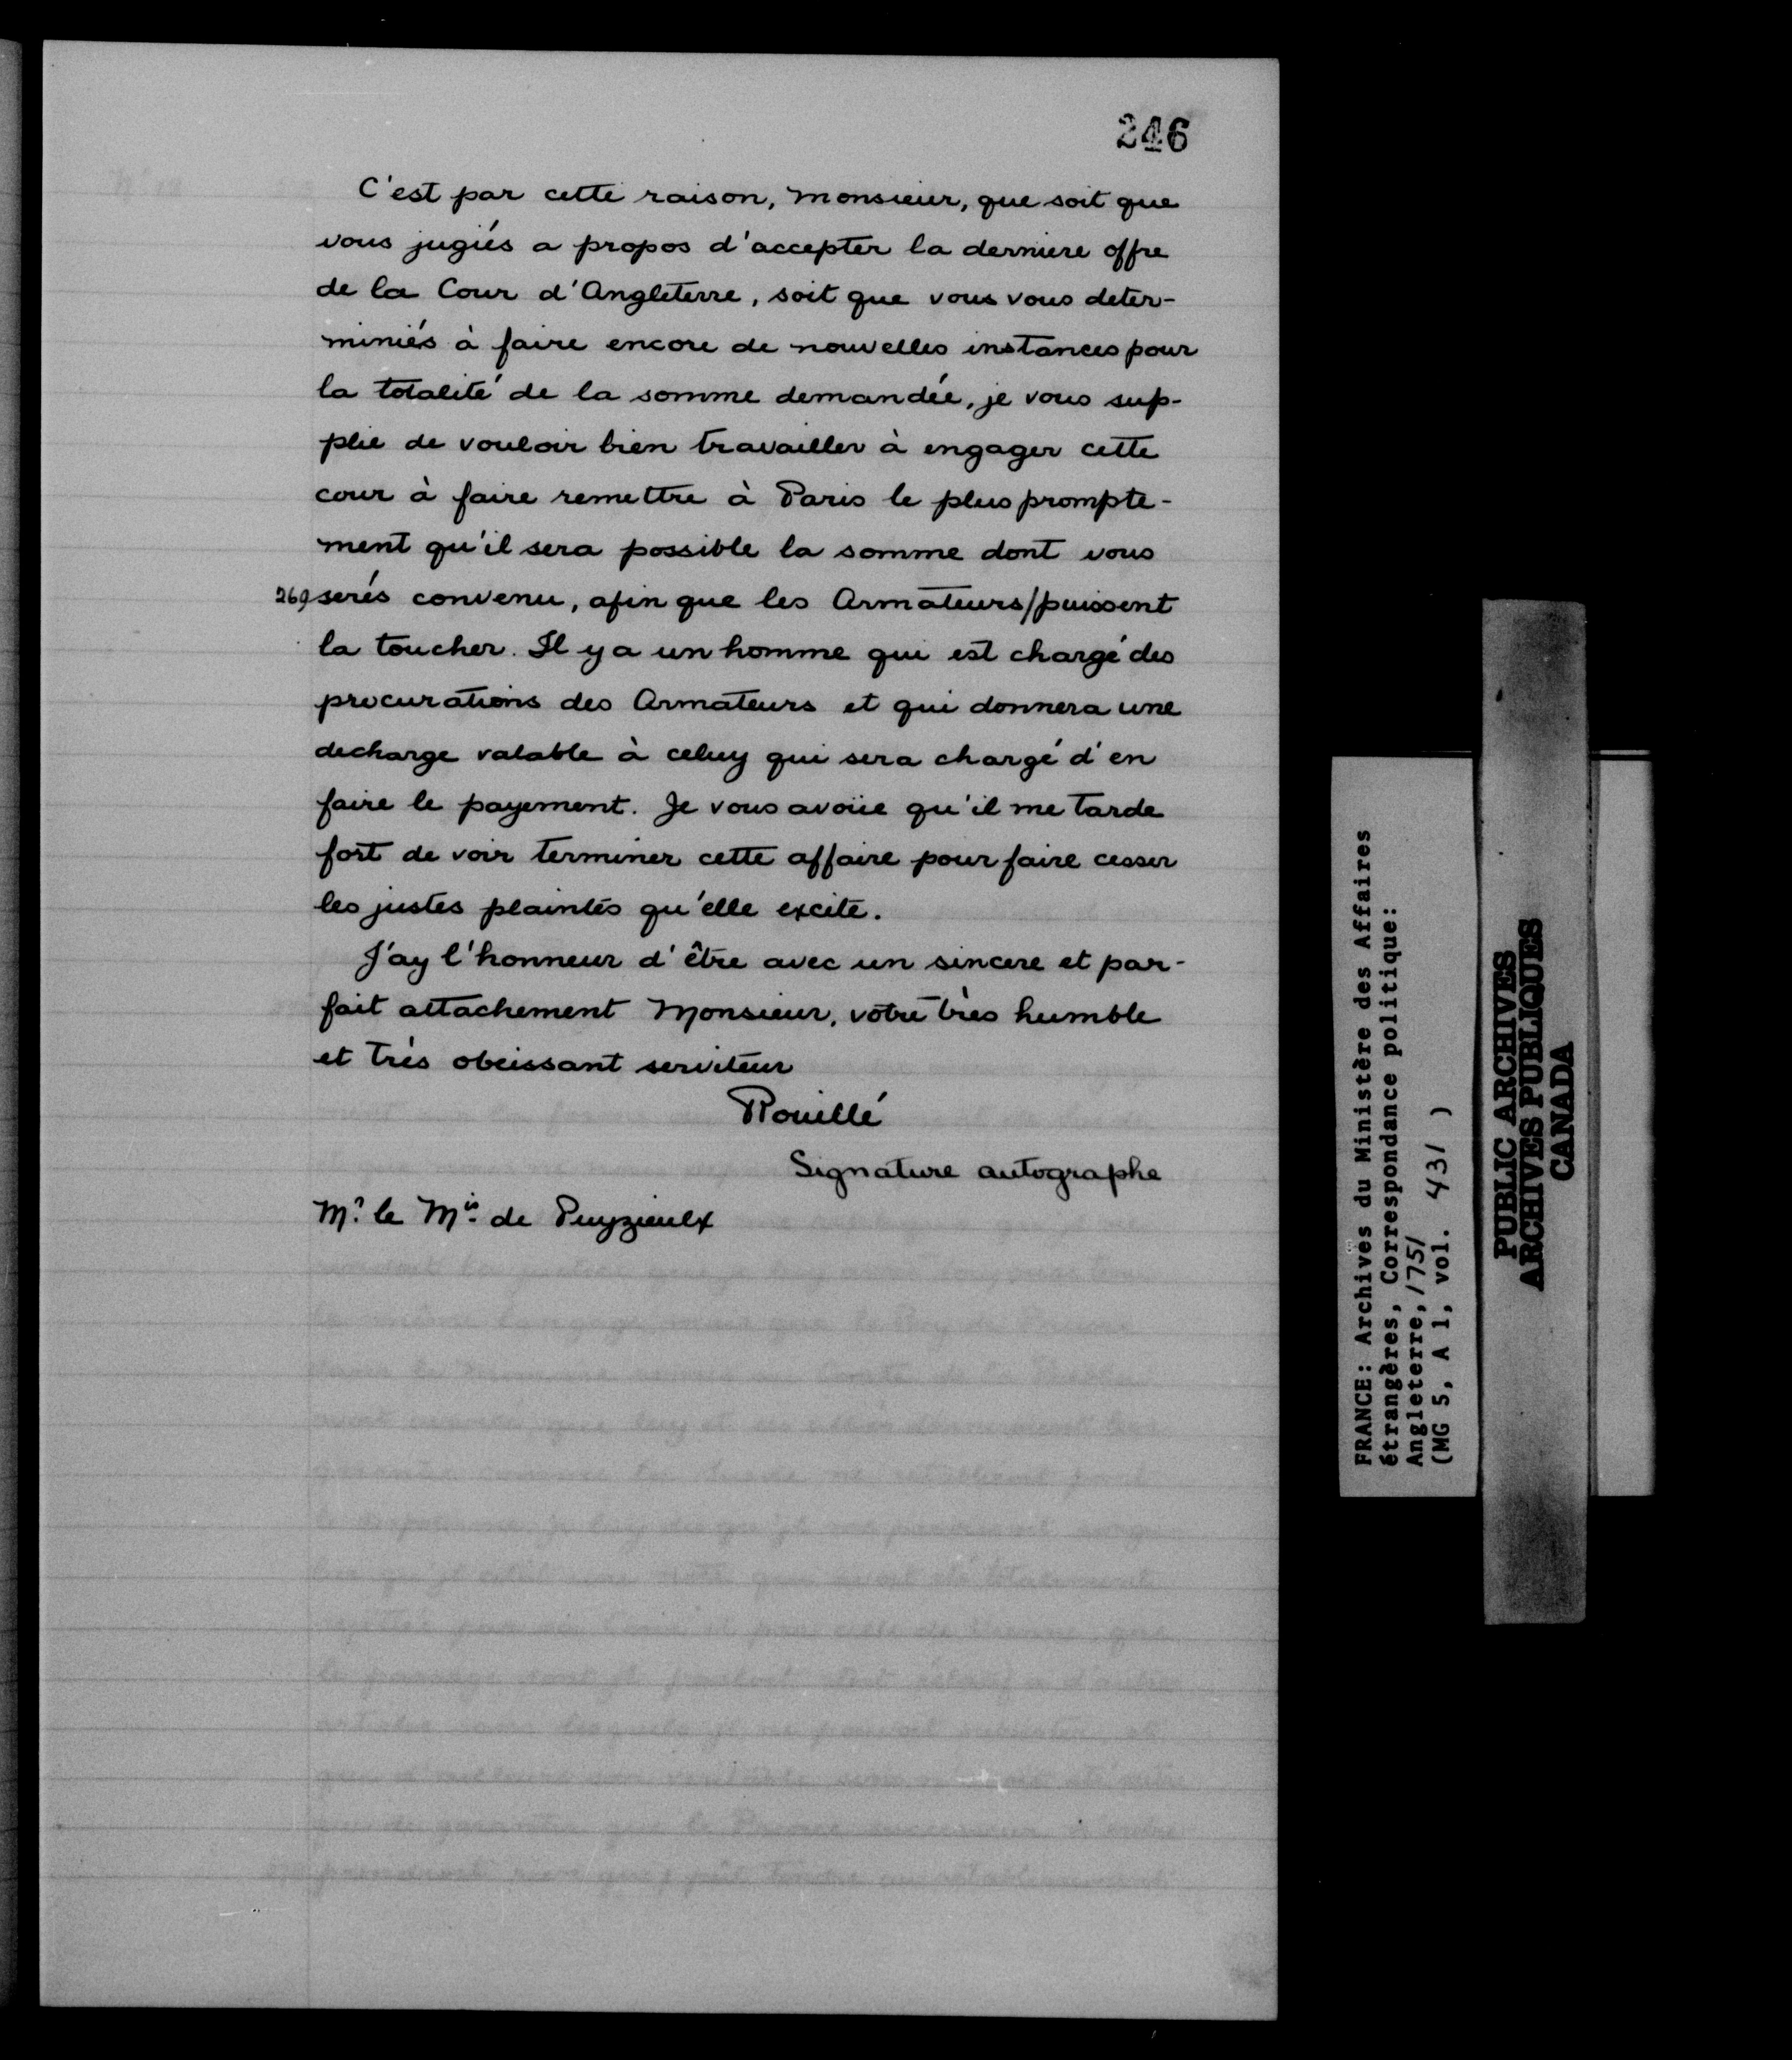 246
C'est par cette raison, Monsieur, que soit que
vous jugiés a propos d'accepter la derniere offre
de la Cour d'Angleterre, soit que vous vous deter-
miniés à faire encore de nouvelles instances pour
la totalité de la somme demandée, je vous sup-
plie de vouloir bien travailler à engager cette
cour à faire remettre à Paris le plus prompte-
ment qu'il sera possible la somme dont vous
269 serés convenu, afin que les Armateurs/puissent
la toucher. Il y a un homme qui est chargé des
procurations des Armateurs et qui donnera une
decharge valable à celuy qui sera chargé d'en
faire le payement. Je vous avoüe qu'il me tarde
fort de voir terminer cette affaire pour faire cesser
les justes plaintes qu'elle excite.
J'ay l'honneur d'être avec un sincere et par-
fait attachement Monsieur, vôtre très humble
et très obeissant serviteur
Rouillé
Signature autographe
Mr. le Mis. de Puyzieulx
FRANCE: Archives du Ministère des Affaires
étrangères, Correspondance politique:
Angleterre, 1751
(MG 5, A 1, vol. 431 )
PUBLIC ARCHIVES
ARCHIVES PUBLIQUES
CANADA